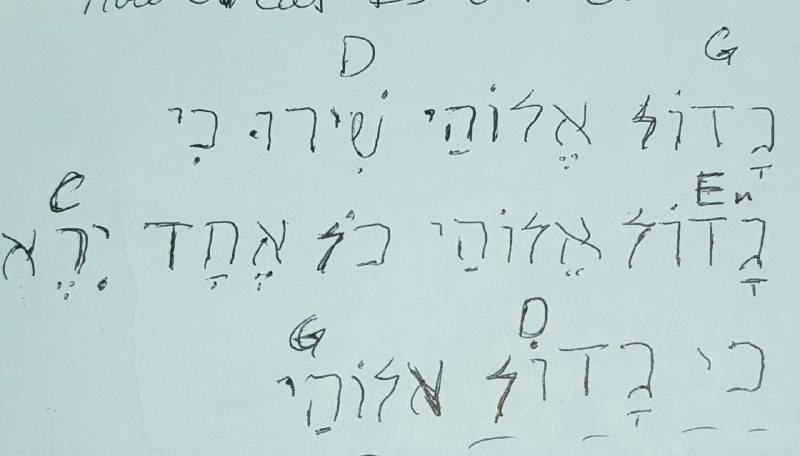 D G
גָדוֹל אֱלוֹהַי שִׁירוּ כִי
C Em
גָדוֹל אֱלוֹהַי כֹל אֶחָד יִרֶא
G D
כי גָדוֹל אלוֹהַי